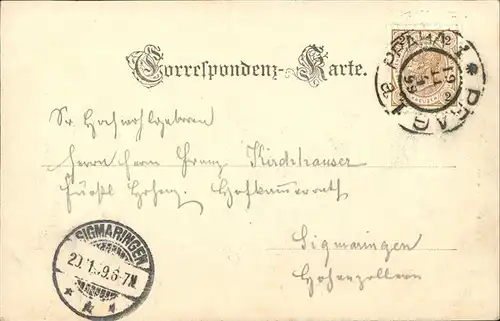 Correspondenz-Karte.
PRAHA 1
PRAG 1
19
11
99
Sr Hochwohlgeboren
Herrn Herrn Franz Kirchhauser
Fürstl Hohenz. Hofkammerrath
SIGMARINGEN
20.11.99.6-7N.
Sigmaringen
Hohenzollern